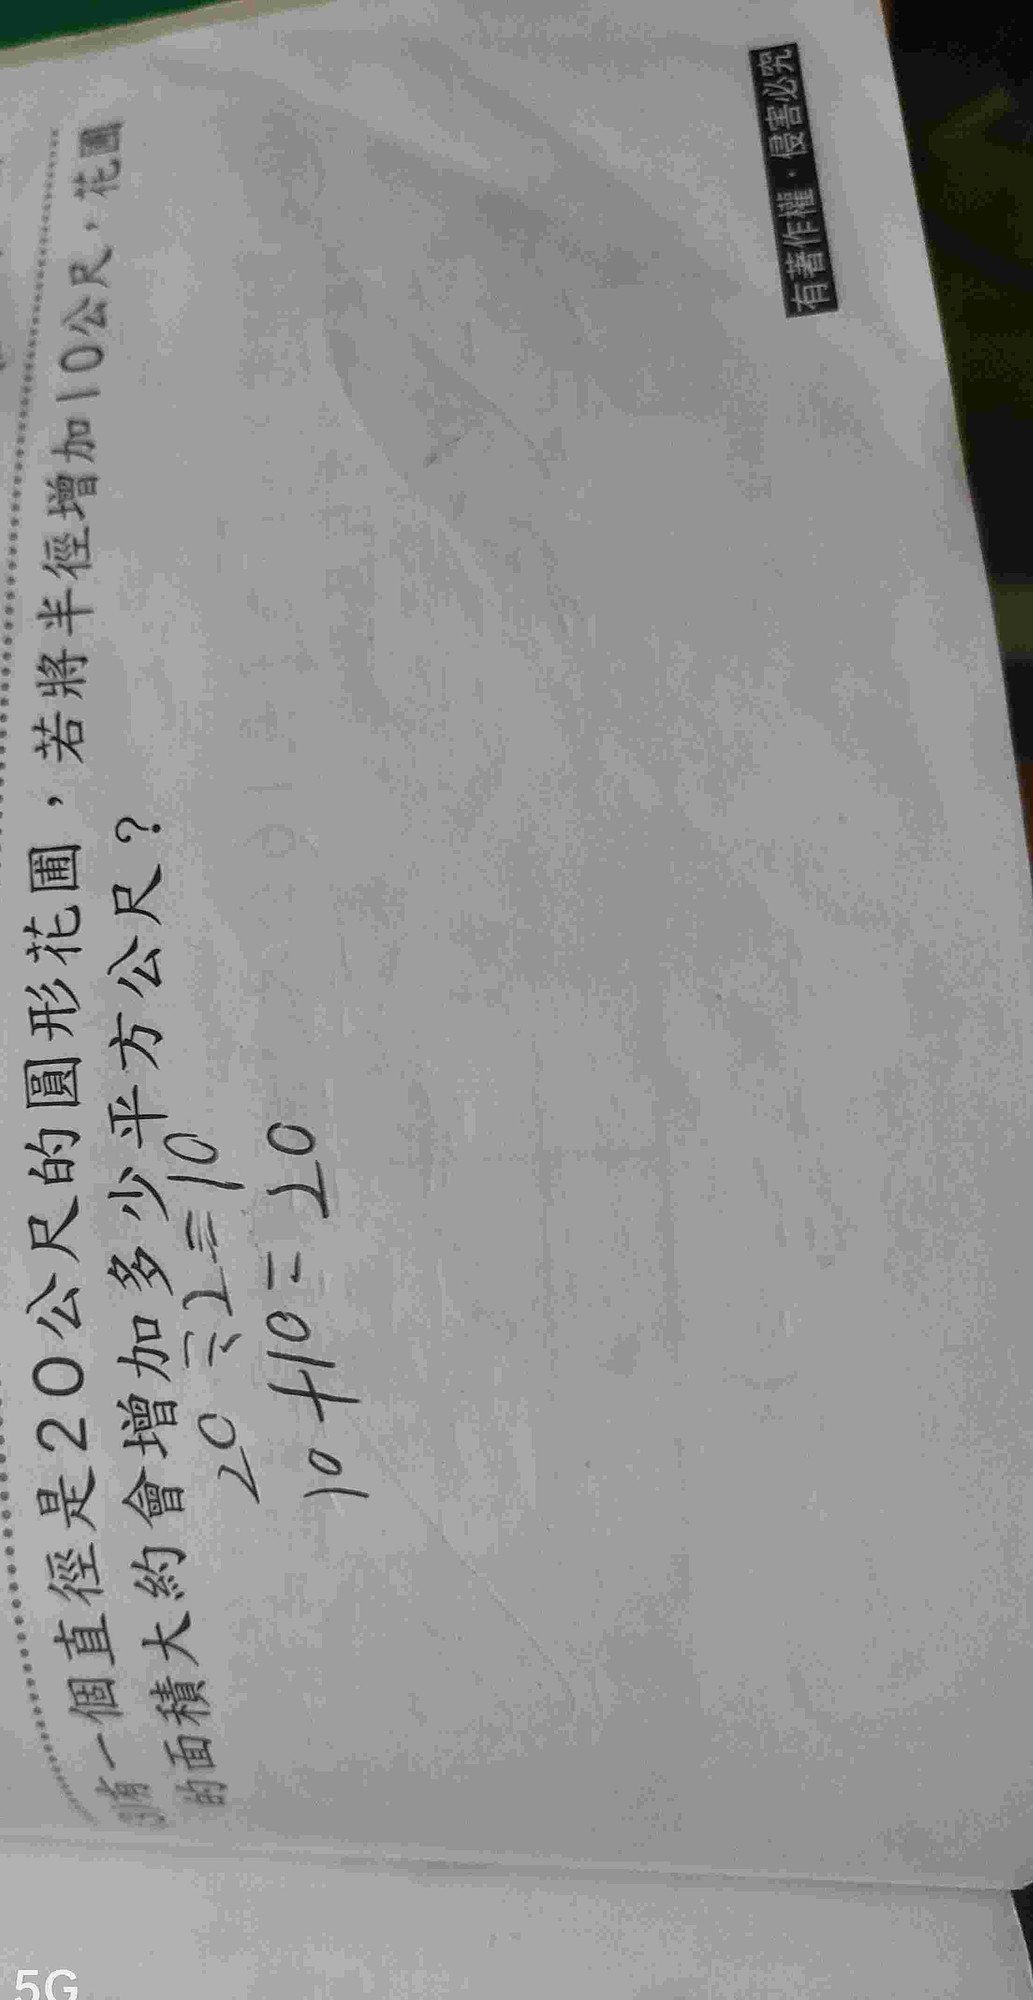 有一個直徑是20公尺的圓形花圃，若將半徑增加10公尺，花圃
的面積大約會增加多少平方公尺？
20÷2=10
10+10=20
有著作權·侵害必究
5G